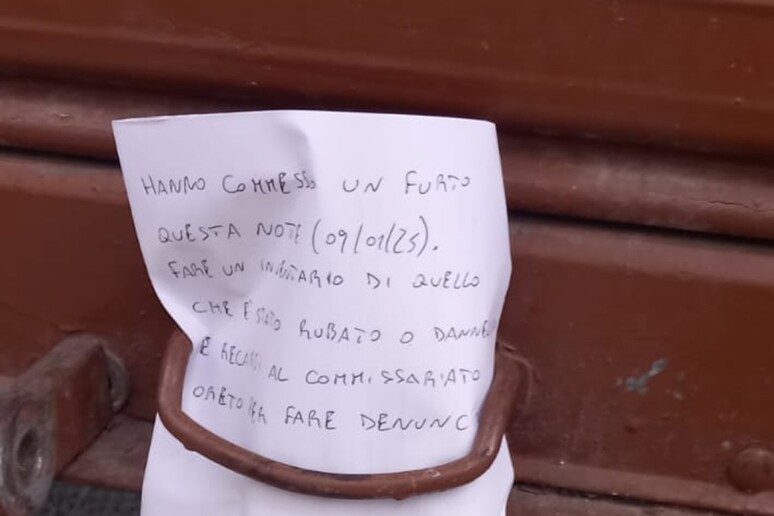 HANNO COMMESSO UN FURTO
QUESTA NOTE (09/01/25).
FARE UN INVENTARIO DI QUELLO
CHE E' STATO RUBATO O DANNE
E RECARSI AL COMMISSARIATO
ORETO PER FARE DENUNC